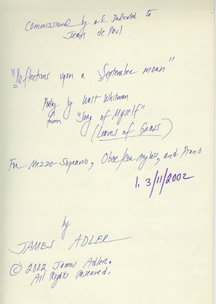 Commissioned by and Dedicated to
Jean de Paul
"Reflections upon a September moon"
Poetry by Walt Whitman
from "Song of Myself"
(Leaves of Grass)
For Mezzo-Soprano, Oboe/ and Piano
1. 3/11/2002
by
JAMES ADLER
© 2002 James Adler.
All Rights Reserved.